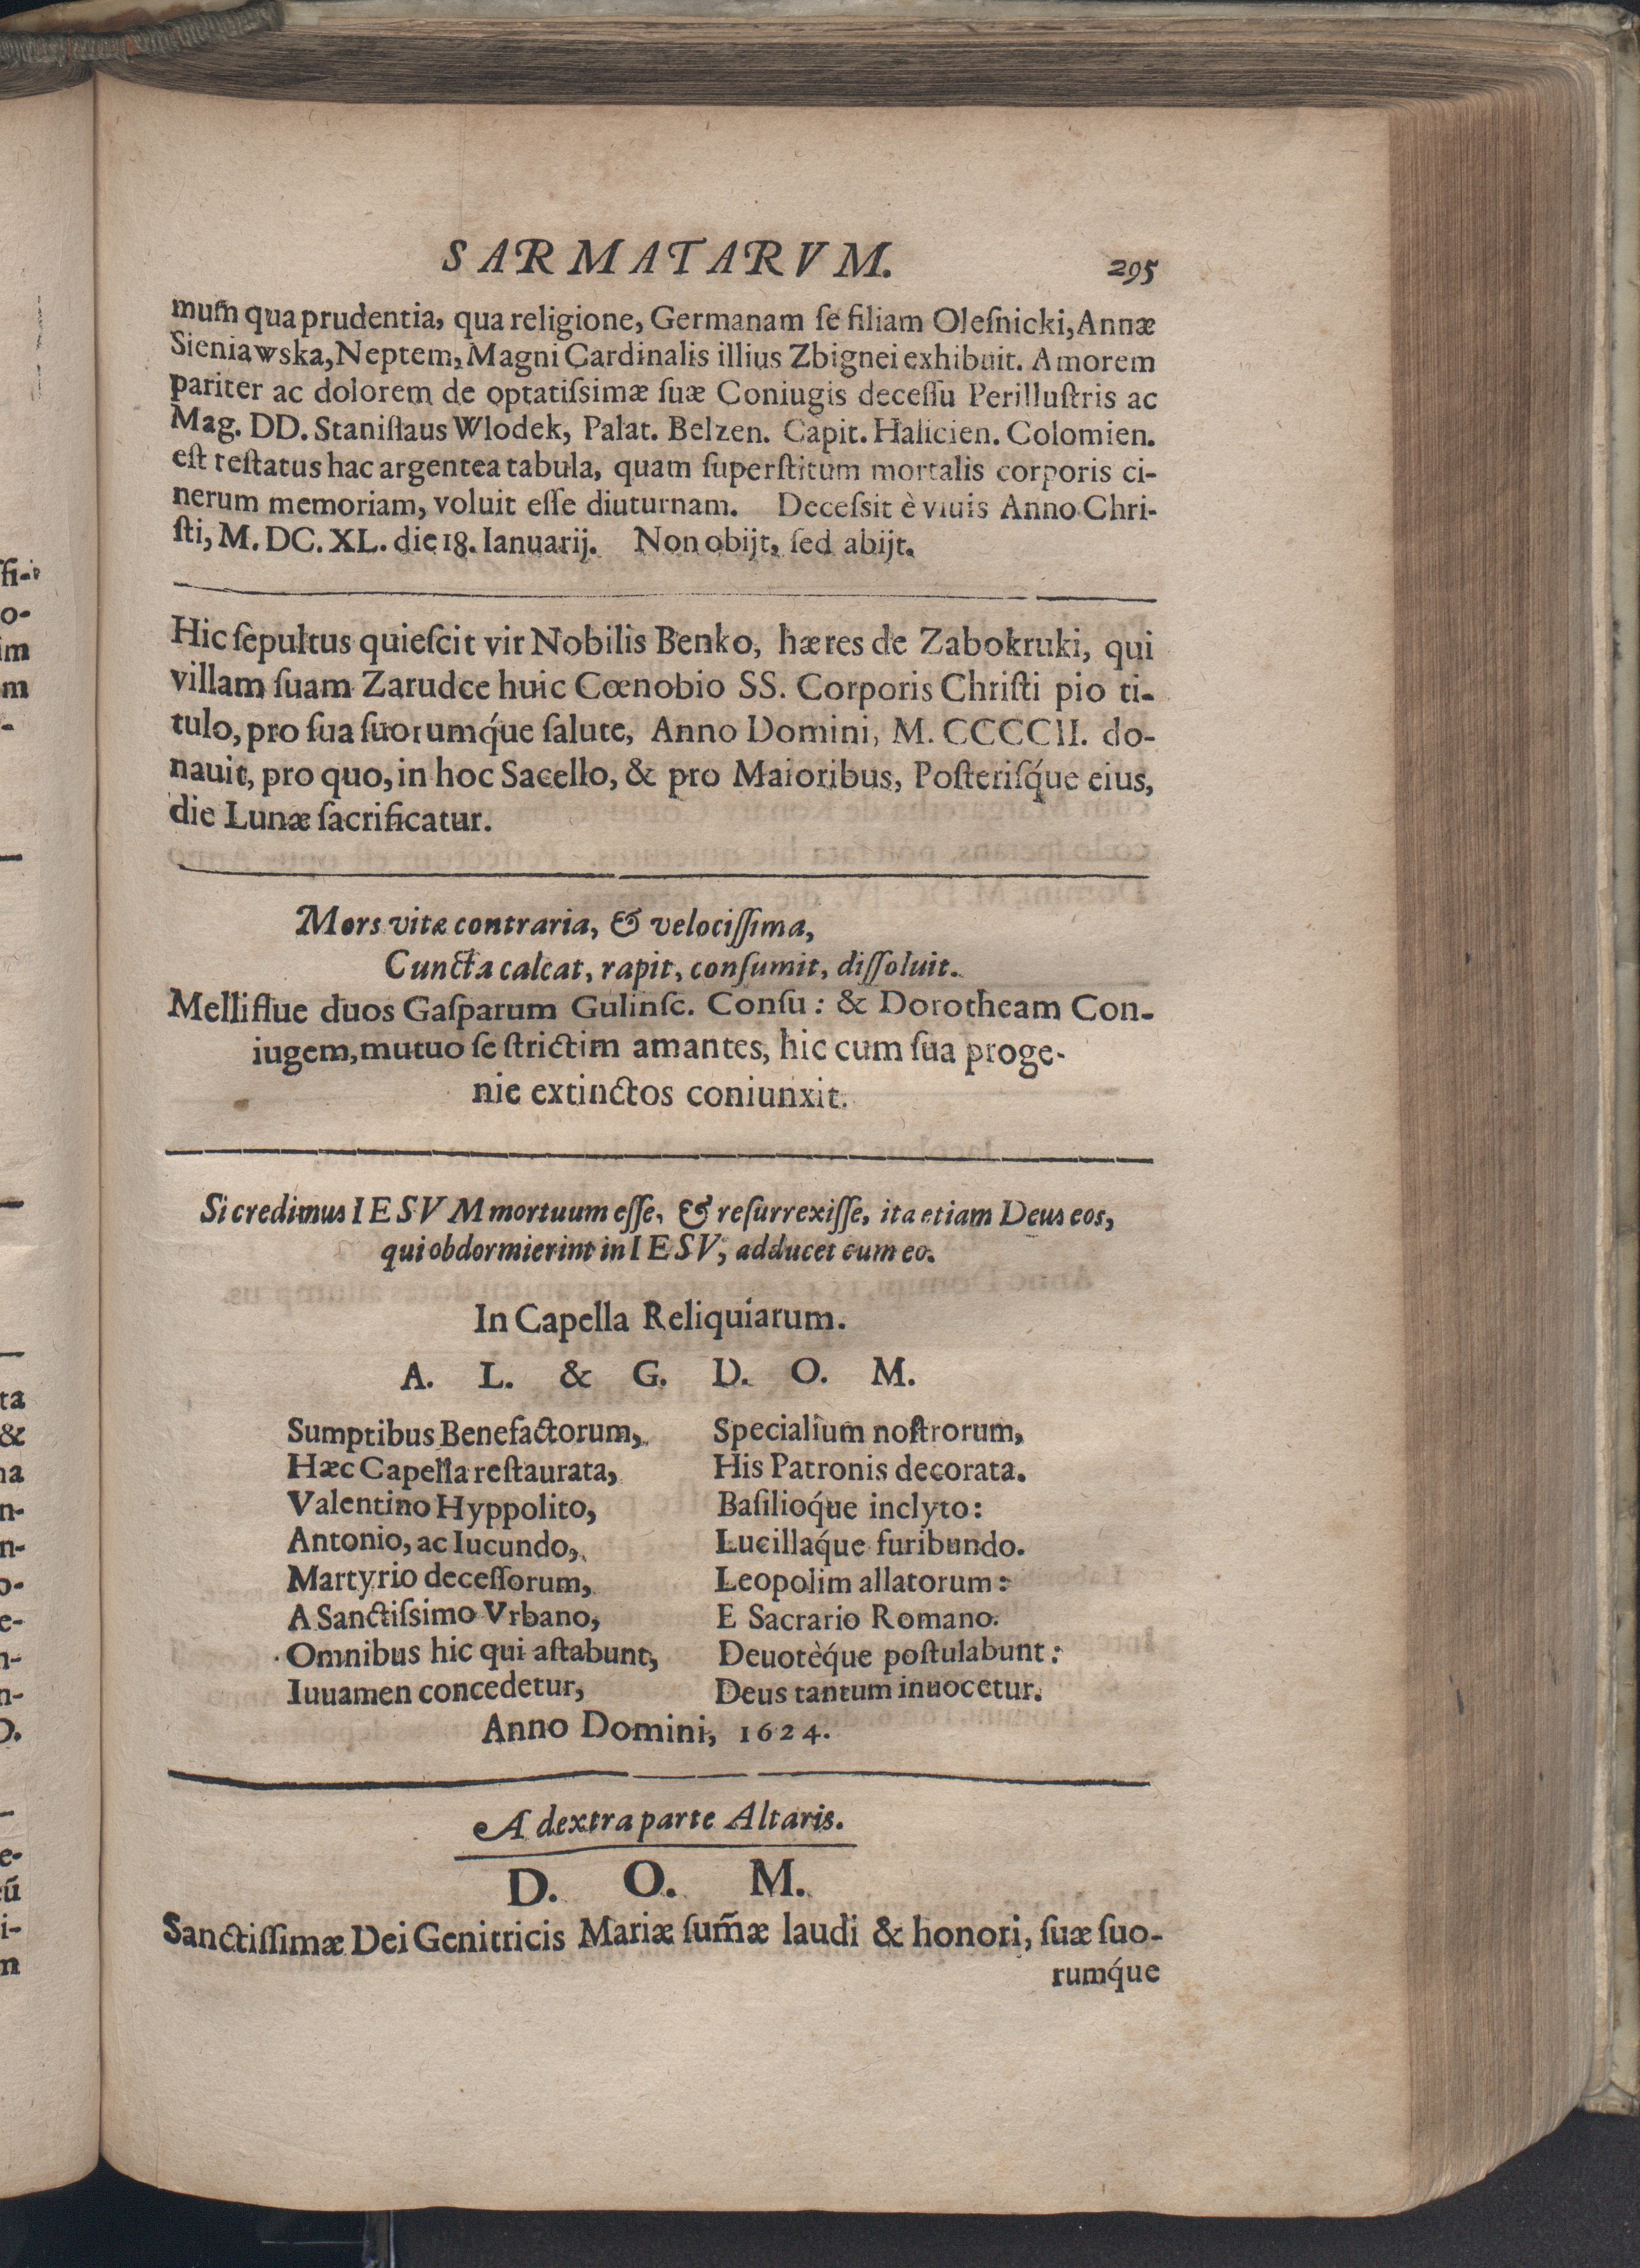 SARMATARVM. 295
mum̃ qua prudentia, qua religione, Germanam ſe filiam Oleſnicki, Annæ
Sieniawska, Neptem, Magni Cardinalis illius Zbignei exhibuit. Amorem
pariter ac dolorem de optatiſsimæ ſuæ Coniugis deceſſu Perilluſtris ac
Mag. DD. Staniſlaus Wlodek, Palat. Belzen. Capit. Halicien. Colomien.
eſt reſtatus hac argentea tabula, quam ſuperſtitum mortalis corporis ci-
nerum memoriam, voluit eſſe diuturnam. Deceſsit è viuis Anno Chri-
ſti, M. DC. XL. die 18. Ianuarij. Non obijt, ſed abijt.
Hic ſepultus quieſcit vir Nobilis Benko, hæres de Zabokruki, qui
villam ſuam Zarudce huic Cœnobio SS. Corporis Chriſti pio ti-
tulo, pro ſua ſuorumq́ue ſalute, Anno Domini, M. CCCCII. do-
nauit, pro quo, in hoc Sacello, & pro Maioribus, Poſteriſq́ue eius,
die Lunæ ſacrificatur.
Mors vitæ contraria, & velociſſima,
Cuncta calcat, rapit, conſumit, diſſoluit.
Melliflue duos Gaſparum Gulinſc. Conſu: & Dorotheam Con-
iugem, mutuo ſe ſtrictim amantes, hic cum ſua proge-
nie extinctos coniunxit.
Si credimus IESVM mortuum eſſe, & reſurrexiſſe, ita etiam Deus eos,
qui obdormierint in IESV, adducet cum eo.
In Capella Reliquiarum.
A. L. & G. D. O. M.
Sumptibus Benefactorum, Specialium noſtrorum,
Hæc Capella reſtaurata, His Patronis decorata.
Valentino Hyppolito, Baſilioq́ue inclyto:
Antonio, ac Iucundo, Lucillaq́ue furibundo.
Martyrio deceſſorum, Leopolim allatorum:
A Sanctiſsimo Vrbano, E Sacrario Romano.
Omnibus hic qui aſtabunt, Deuotèq́ue poſtulabunt:
Iuuamen concedetur, Deus tantum inuocetur.
Anno Domini, 1624.
A dextra parte Altaris.
D. O. M.
Sanctiſſimæ Dei Genitricis Mariæ ſum̃æ laudi & honori, ſuæ ſuo-
rumq́ue